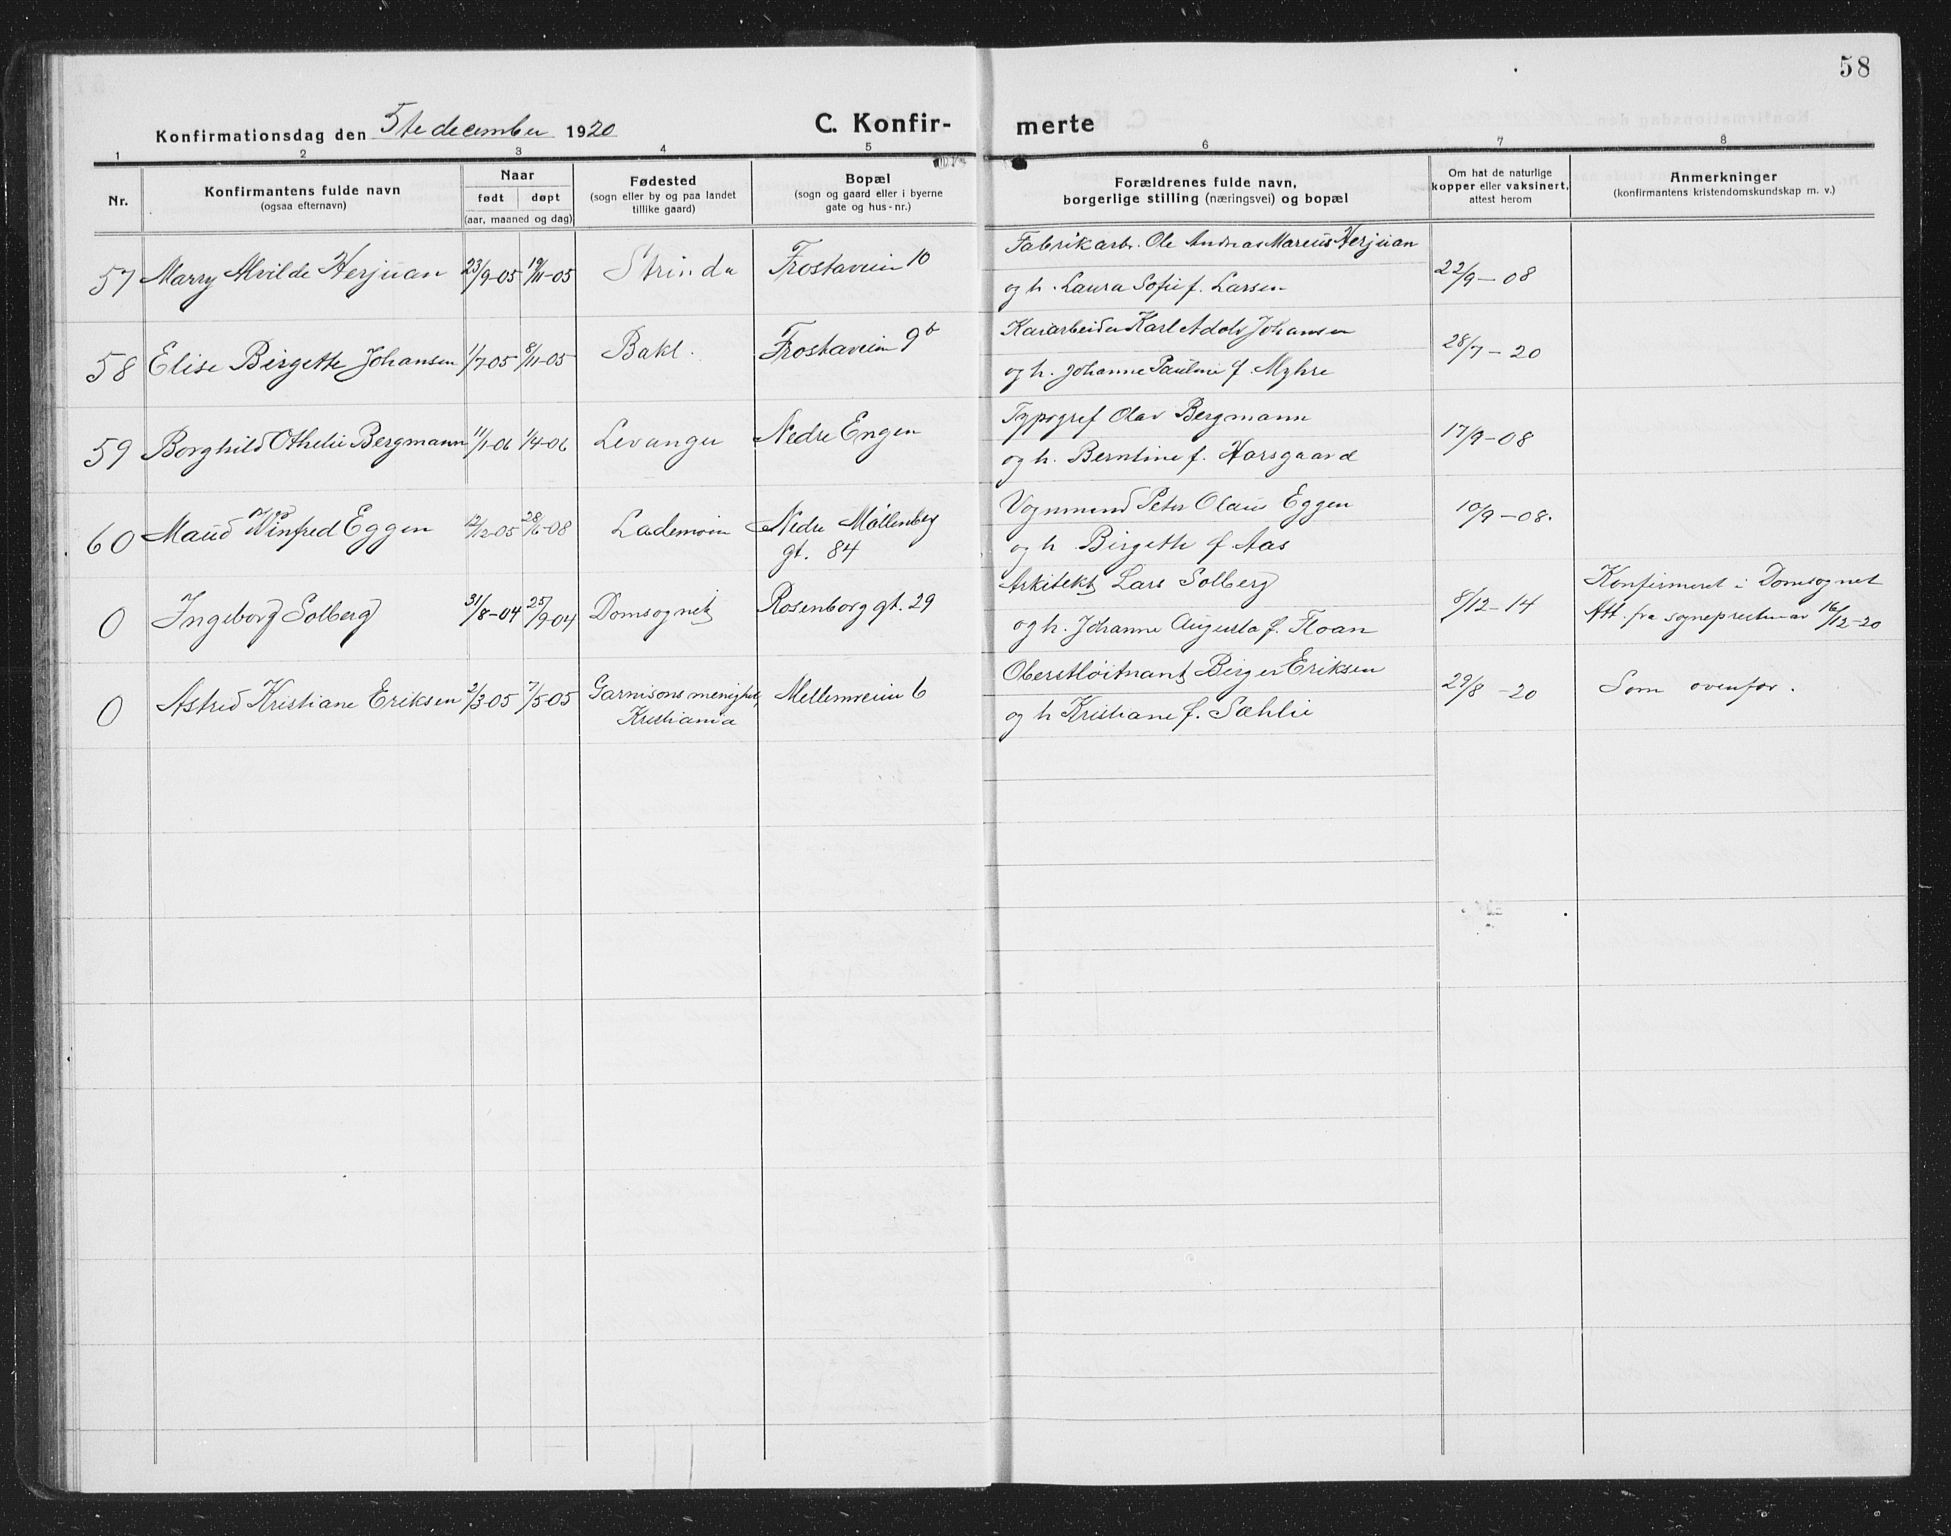 58
Konfirmationsdag den 5te december 1920
C. Konfir- merte
1 2 3 4 5 6 7 8
Nr.
Konfirmantens fulde navn
(ogsaa efternavn)
Naar
født døpt
(aar, maaned og dag)
Fødested
(sogn eller by og paa landet
tillike gaard)
Bopæl
(sogn og gaard eller i byerne
gate og hus-nr.)
Forældrenes fulde navn,
borgerlige stilling (næringsvei) og bopæl
Om hat de naturlige
kopper eller vaksinert,
attest herom
Anmerkninger
(konfirmantens kristendomskundskap m. v.)
57 Marry Alvilde Herjuan 23/9-05 19/11-05 Strinda Frostaveien 10 Fabrikarb. Ole Andreas Marcus Herjuan
og h. Laura Sofie f. Larsen 22/9-08
58 Elise Birgette Johansen 1/7-05 8/11-05 Bakl. Frostaveien 9b Kaiarbeider Karl Adolv Johansen
og h. Johanne Pauline f. Myhre 28/7-20
59 Borghild Othelie Bergmann 11/1-06 1/4-06 Levanger Nedre Engen Typogref Olav Bergmann
og h. Berntine f. Horsgaard 17/9-08
60 Maud Winfred Eggen 12/2-05 28/6-08 Lademoen Nedre Møllenberg
gt. 84
Vognmand Peter Olaus Eggen
og h. Birgeth f. Aas 10/9-08.
0 Ingeborg Solberg 31/8-04 25/9-04 Domsognet Rosenborg gt. 29 Arkitekt Lars Solberg
og h. Johanne Augusta f. Floan 8/12-14 Konfirmeret i Domsognet
Att. fra sognepresten av 16/12-20
0 Astrid Kristiane Eriksen 2/3-05 7/5-05 Garnisons menighet,
Kristiania
Mellemveien 6 Oberstløitnant Birger Eriksen
og h Kristiane f. Sæhlie 29/8-20 Som ovenfor.